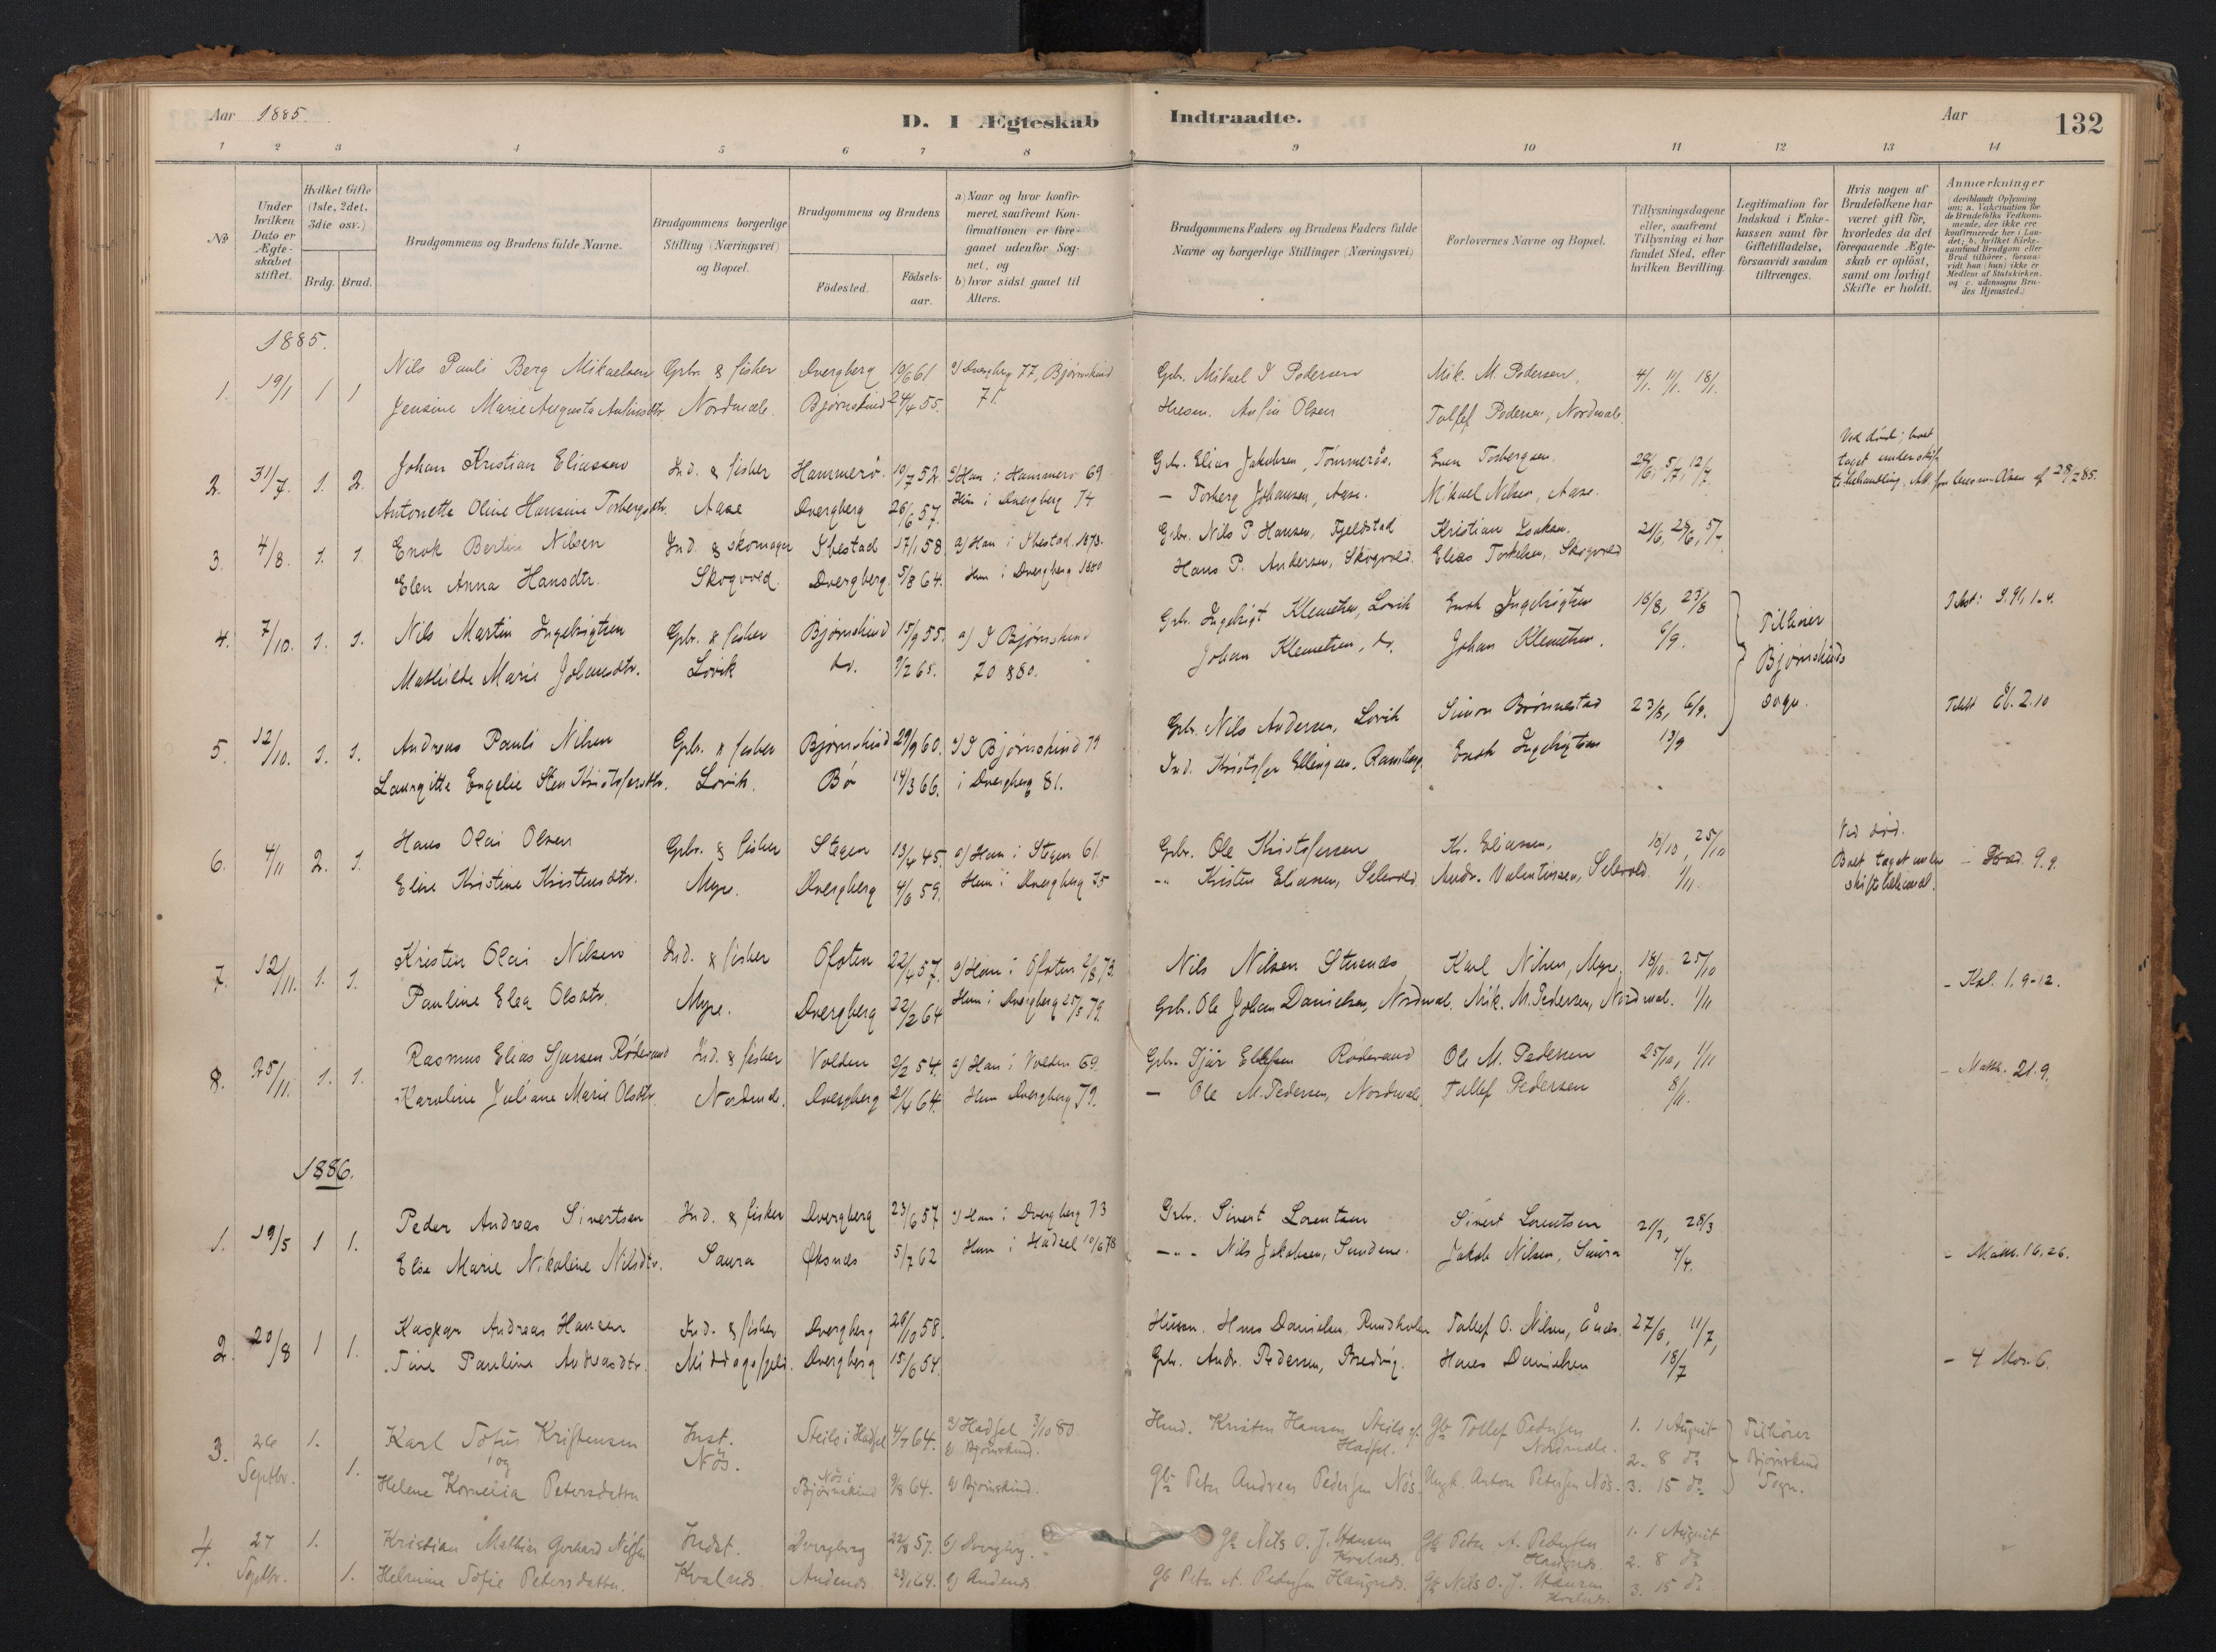 Aar 1885. D. I Ægteskab Indtraadte. Aar 132
1 2 3 4 5 6 7 8 9 10 11 12 13 14
No
Under hvilken Dato er Ægteskabet stiftet.
Hvilket Gifte (1ste, 2det, 3die osv.)
Brdg. Brud.
Brudgommens og Brudens fulde Navne.
Brudgommens borgerlige Stilling (Næringsvei) og Bopæl.
Brudgommens og Brudens
Födested.
Födsels-aar.
a) Naar og hvor konfirmeret, saafremt Konfirmationen er foregaaet udenfor Sognet, og
b) hvor sidst gaaet til Alters.
Brudgommens Faders og Brudens Faders fulde Navne og borgerlige Stillinger (Næringsvei)
Forlovernes Navne og Bopæl.
Tillysningsdagene eller, saafremt Tillysning ei har fundet Sted, efter hvilken Bevilling.
Legitimation for Indskud i Enkekassen samt for Giftetilladelse, forsaavidt saadan tiltrænges.
Hvis nogen af Brudefolkene har været gift för, hvorledes da det foregaaende Ægteskab er oplöst, samt om lovligt Skifte er holdt.
Anmærkninger (deriblandt Oplysning om: a. Vakcination for de Brudefolks Vedkommende, der ikke ere konfirmerede her i Landet; b. hvilket Kirkesamfund Brudgom eller Brud tilhörer, forsaavidt han (hun) ikke er Medlem af Statskirken, og c. udensogns Brudes Hjemsted.)
1885.
1. 19/1 1 1 Nils Pauli Berg Mikaelsen Grbr. & fisker Dvergberg 19/6 61 a) Dvergberg 77, Bjørnskind Gbr. Mikael I Pedersen Mik. M. Pedersen, 4/1. 11/1. 18/1.
Jensine Marie Augusta Antinsdtr. Nordmæle. Bjørnskind 24/4 55. 71 Husm. Antin Olsen Tollef Pedersen, Nordmæle
2. 31/7. 1. 2. Johan Kristian Eliassen Ind. & fisker Hammerö. 10/7 52. a) Han i Hammerö 69 Gbr. Elias Jakobsen, Tømmerås. Even Torbergsen. 5/7, 12/7. Ved död; boet taget under skifte
Antonette Oline Hansine Torbergsdtr. Aase Dvergberg 26/6 57. Hun i Dvergberg 74 — Torberg Johansen, Aase. Mikael Nilsen, Aase.
3. 4/8. 1. 1. Enok Bertin Nilsen Ind. & skomager Ibestad 17/1 58. a) Han i Ibestad 1873. Grbr. Nils P. Hansen, Fjeldstad Kristian 21/6, 28/6, 5/7.
Elen Anna Hansdtr. Skogvold. Dvergberg. 5/8 64. Hun i Dvergberg 1880 Hans P. Andersen, Skogvold. Elias Torkelsen, Skogvold
4. 7/10. 1. 1. Nils Martin Ingebrigtsen Grbr. & fisker Bjørnskind 15/9 55. a) I Bjørnskind Grbr. Ingebrigt Klemetsen, Lovik Enok Ingebrigtsen 16/8, 23/8 Tilhører
Mathilde Marie Johansdtr. Lovik do. 65. 70 & 80. Johan Klemetsen, do. Johan Klemetsen. 6/9. Bjørnskinds Sogn.
5. 12/10. 1. 1. Andreas Pauli Nilsen Grbr. & fisker Bjørnskind 29/9 60. a) I Bjørnskind 79 Grbr. Nils Andersen, Lovik Simon Brönnestad 23/8, 6/9.
Laurgitte Engelie Sten Kristofersdtr. Lovik. Bö 14/3 66. i Dvergberg 81. Ind. Kristofer Ellingsen, Ramberg. Enok Ingebrigtsen 13/9
6. 4/11 2. 1. Hans Olai Olsen Grbr. & fisker Stegen 13/4 45. a) Han i Stegen 61. Grbr. Ole Kristofersen Kr. Eliasen, 18/10, 25/10 Ved död.
Elise Kristine Kristensdtr. Myre. Dvergberg 4/6 59. Hun i Dvergberg 75 -"- Kristen Eliasen, Selvvold. Andr. Valentinsen, Selvvold. 1/11. Boet taget under skiftebehandl.
7. 12/11. 1. 1. Kristen Olai Nilsen Ind. & fisker Ofoten 22/4 57. a) Han i Ofoten 73. Nils Nilsen Karl Nilsen, Myre. 18/10. 25/10
Pauline Elea Olsdtr. Myre. Dvergberg 22/2 64 Hun i Dvergberg 25/5 79. Grbr. Ole Johan Danielsen, Nordmæle. Mik. M. Pedersen, Nordmæle. 1/11 - Kol. 1. 9-12.
8. 25/11. 1. 1. Rasmus Elias Sjursen Rödesand Ind. & fisker Volden 2/2 54. a) Han i Volden 69. Grbr. Sjur Ellefsen Rödesand Ole M. Pedersen 25/10, 1/11 - Matth. 21. 9.
Karoline Juliane Marie Olsdtr. Nordmæle. Dvergberg 2/4 64. Hun Dvergberg 79. — Ole M. Pedersen, Nordmæle. Tollef Pedersen 8/11.
1886.
1. 19/5 1 1. Peder Andreas Sivertsen Ind. & fisker Dvergberg 23/6 57 a) Han i Dvergberg 73 Grbr. Sivert Lorentsen Sivert Lorentsen 21/3, 28/3
Else Marie Nikoline Nilsdtr. Saura Øksnes 5/7 62 Hun i Hadsel 10/6 78 -"- Nils Jakobsen, Sundene. Jakob Nilsen, Saura 4/4. - Matth. 16, 26.
2. 20/8 1 1. Kaspar Andreas Hansen Ind. & fisker Dvergberg 28/10 58. Husm. Hans Danielsen, Rundholen Tollef O. Nilsen, Ånes. 27/6, 11/7,
Tine Pauline Andreasdtr. Middagsfjeld. Dvergberg 15/6 54. Grbr. Andr. Pedersen, Bredvig. Hans Danielsen 18/7 - 4 Mos. 6.
3. 26 Septbr. 1. Karl Tofus Kristensen Inst. Steilo i Hadsel 4/7 64. a) Hadsel 3/10 80 Kristen Hansen Steilo Gbr Tollef Pedersen 1. 1 August Tilhörer
og Nös. b) Bjørnskind. Hadsel. Nordmæle. 2. 8 do Bjørnskind
1. Helene Kornelia Petersdatter Nös i Bjørnskind 9/8 64. b) Bjørnskind. Gbr Peter Andreas Pedersen Nös. Ungk. Anton Petersen Nös. 3. 15 do Sogn.
4. 27 Septbr. 1. Kristian Mathias Gerhard Nilsen Indst. Dvergberg 22/8 57. b) Dvergberg. Gbr Nils O. J. Hansen Kvalnes. Gbr Peter A. Pedersen Haugnes. 1. 1 August
2. 8 do
1. Helmine Tofie Petersdatter. Kvalnes. Andenes 64. b) Andenes Gbr Peter A. Pedersen Haugnes. Gbr Nils O. J. Hansen Kvalnes. 3. 15 do